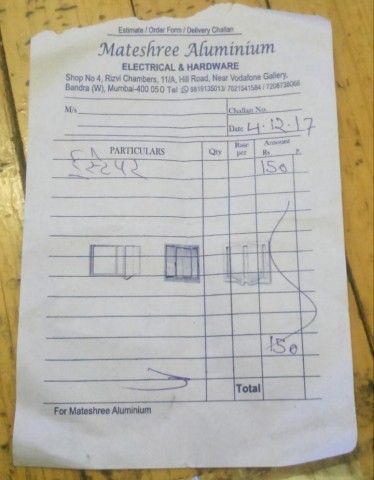 Estimate / Order Form / Delivery Challan
Mateshree Aluminium
ELECTRICAL & HARDWARE
Shop No 4, Rizvi Chambers, 11/A, Hill Road, Near Vodafone Gallery,
Bandra (W), Mumbai-400 050 Tel 9819135013/ 7021541584 / 7208738066
M/s
Challan No.
Date 4.12.17
PARTICULARS Qty Rate per Amount Rs P.
150
150
Total
For Mateshree Aluminium